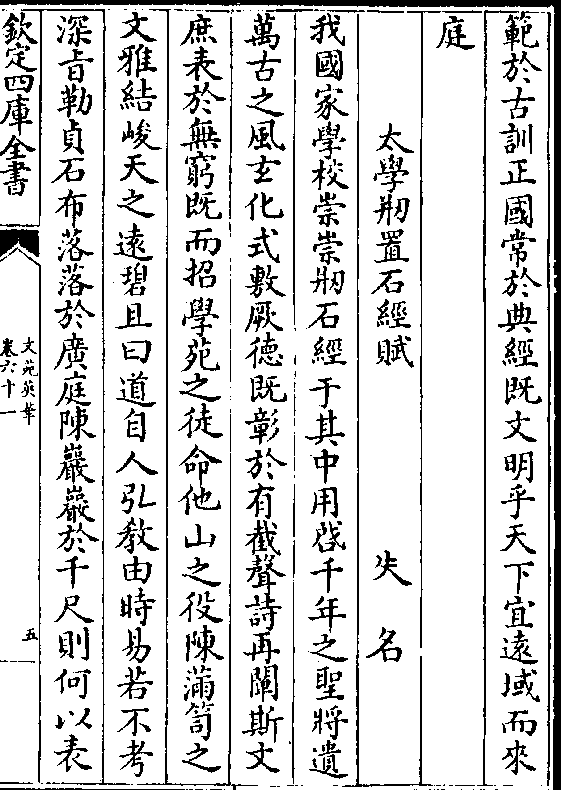 範於古訓正國常於典經既文明乎天下宜遠域而來
庭
太學刱置石經賦 失名
我國家學校崇崇刱石經于其中用啓千年之聖將遺
萬古之風玄化式敷厥德既彰於有截聲詩再闡斯文
庶表於無窮既而招學苑之徒命他山之役陳滿笥之
文雅結峻天之遠碧且曰道自人弘教由時易若不考
深旨勒貞石布落落於廣庭陳巖巖於千尺則何以表
欽定四庫全書
文苑英華
卷六十一
五